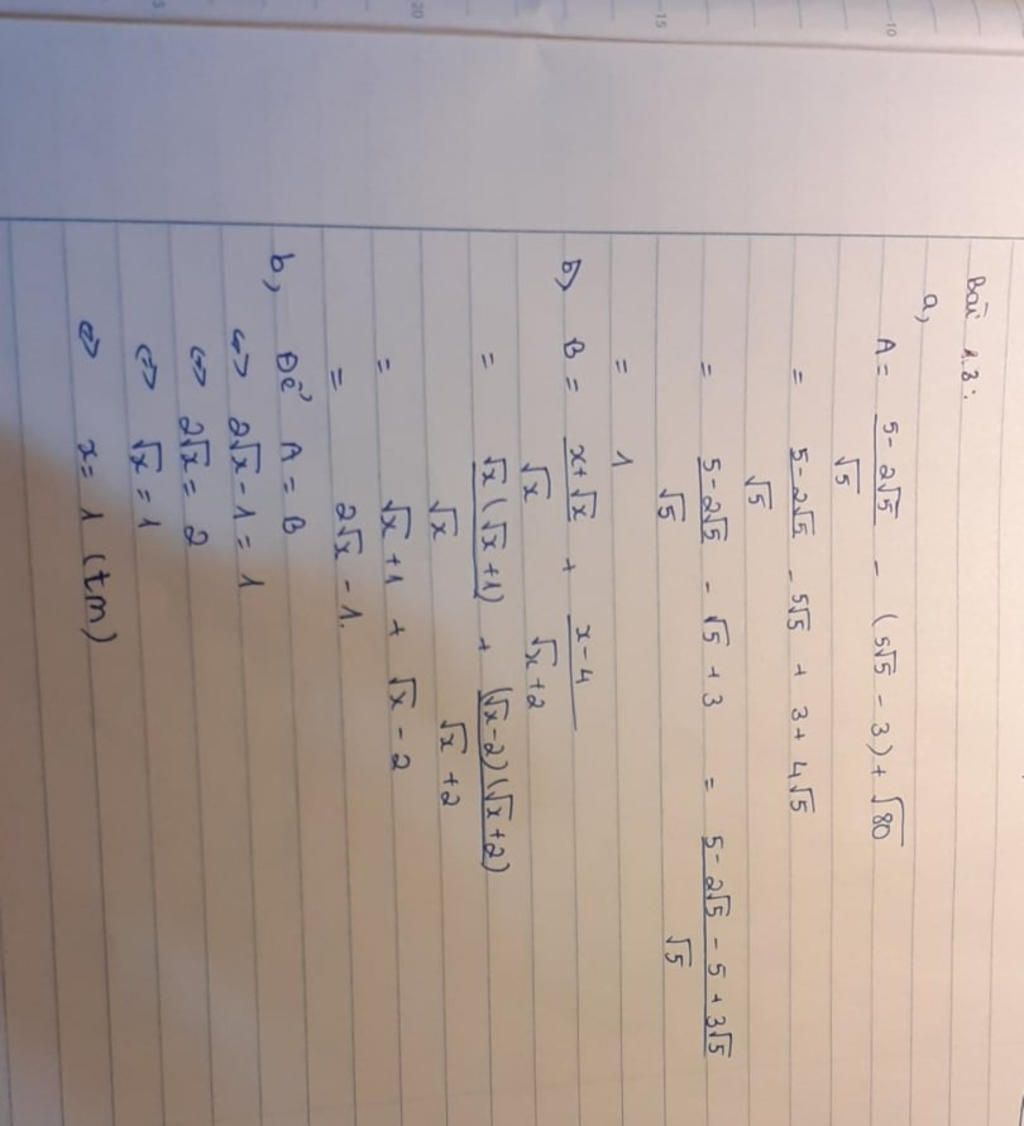 Bài 1.3:
a,
A = \frac{5-2√5}{√5} - (5√5 - 3) + √80
= \frac{5-2√5}{√5} - 5√5 + 3 + 4√5
= \frac{5-2√5}{√5} - √5 + 3 = \frac{5-2√5-5+3√5}{√5}
= 1
b) B = \frac{x+√x}{√x} + \frac{x-4}{√x+2}
= \frac{√x(√x+1)}{√x} + \frac{(√x-2)(√x+2)}{√x+2}
= √x+1 + √x-2
= 2√x - 1.
b, Để A = B
<=> 2√x - 1 = 1
<=> 2√x = 2
<=> √x = 1
<=> x = 1 (tm)
10
15
20